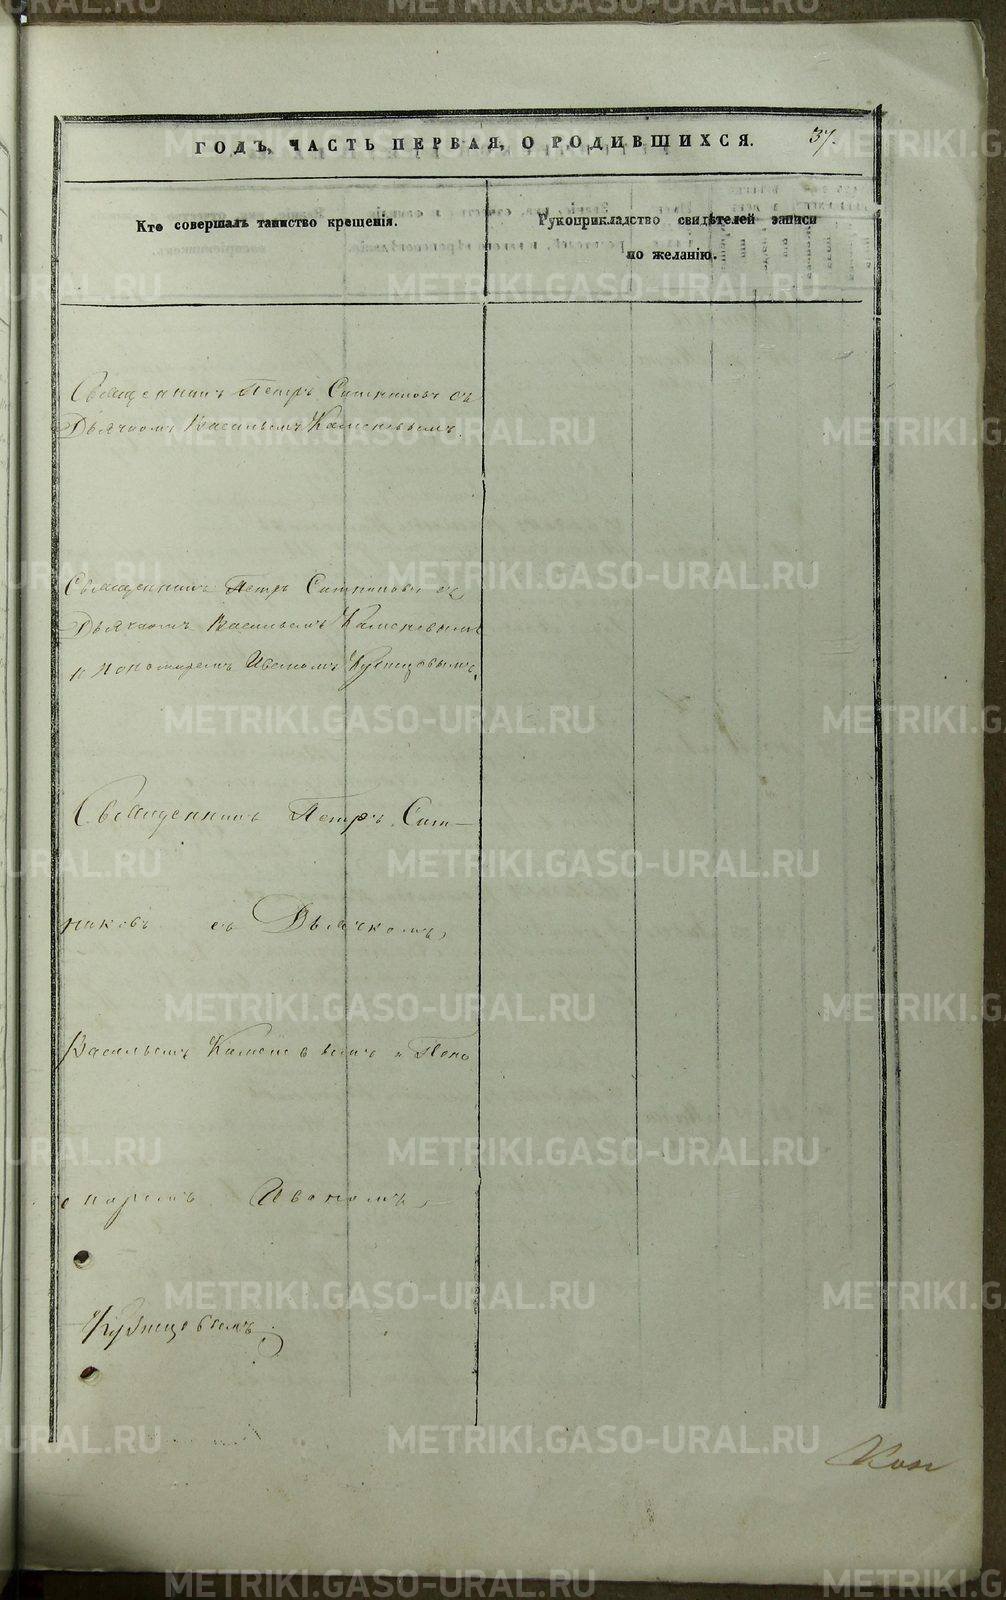 ГОДЪ, ЧАСТЬ ПЕРВАЯ, О РОДИВШИХСЯ. 37.
Кто совершалъ таинство крещенія.
Рукоприкладство свидѣтелей записи
по желанію.
Священникъ Петръ Ситниковъ съ
Дьячкомъ Васильемъ Каменевымъ.
Священникъ Петръ Ситниковъ съ
Дьячкомъ Васильемъ Каменевымъ
и пономаремъ Иваномъ Кузнецовымъ.
Священникъ Петръ Сит-
никовъ съ Дьячкомъ
Васильемъ Каменевымъ и Поно
маремъ Иваномъ
Кузнецовымъ.
METRIKI.GASO-URAL.RU